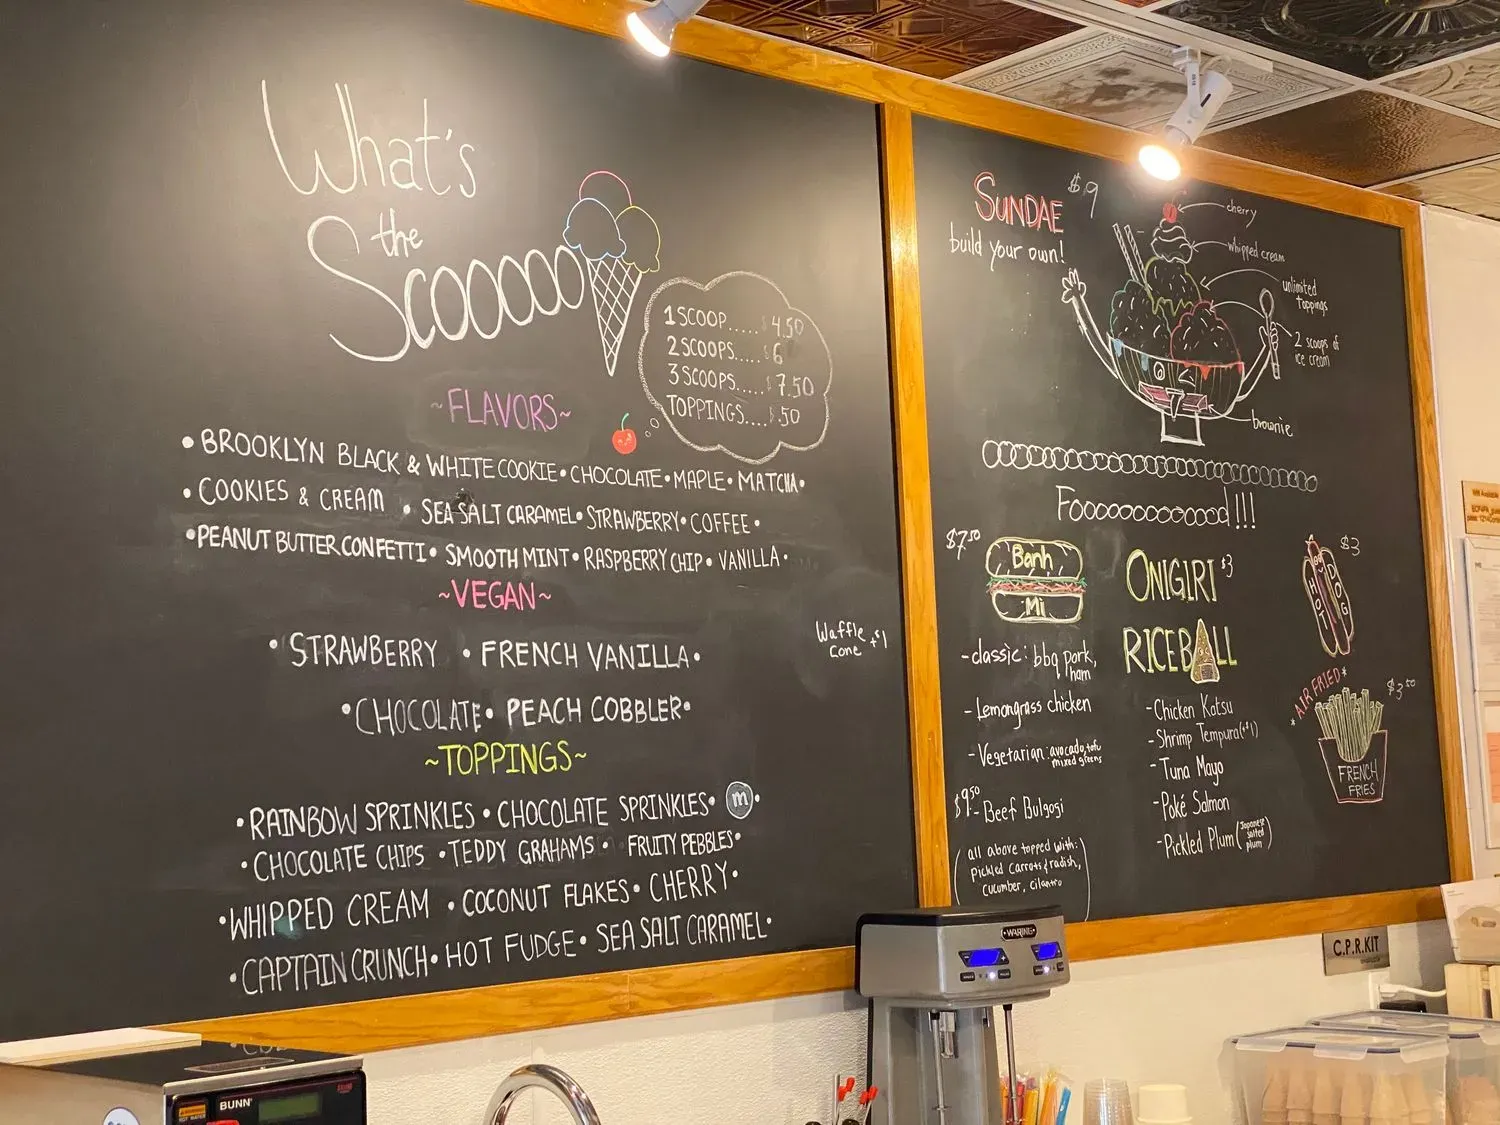 What's
the
Scooooo
1 SCOOP..... $4.50
2 SCOOPS..... $6
3 SCOOPS..... $7.50
TOPPINGS.... $.50
~FLAVORS~
• BROOKLYN BLACK & WHITE COOKIE • CHOCOLATE • MAPLE • MATCHA •
• COOKIES & CREAM • SEA SALT CARAMEL • STRAWBERRY • COFFEE •
• PEANUT BUTTER CONFETTI • SMOOTH MINT • RASPBERRY CHIP • VANILLA •
~VEGAN~
• STRAWBERRY • FRENCH VANILLA •
• CHOCOLATE • PEACH COBBLER •
Waffle
cone +$1
~TOPPINGS~
• RAINBOW SPRINKLES • CHOCOLATE SPRINKLES • m •
• CHOCOLATE CHIPS • TEDDY GRAHAMS • FRUITY PEBBLES •
• WHIPPED CREAM • COCONUT FLAKES • CHERRY •
• CAPTAIN CRUNCH • HOT FUDGE • SEA SALT CARAMEL •
SUNDAE $9
build your own!
cherry
whipped cream
unlimited
toppings
2 scoops of
ice cream
brownie
Foooooooooood!!!
$7.50
Banh
Mi
- classic: bbq pork,
ham
- Lemongrass chicken
- Vegetarian: avocado, tofu
mixed greens
$9.50 - Beef Bulgogi
(all above topped with:
pickled carrots & radish,
cucumber, cilantro)
ONIGIRI $3
RICEBALL
- Chicken Katsu
- Shrimp Tempura (+$1)
- Tuna Mayo
- Poké Salmon
- Pickled Plum (Japanese
salted
plum)
$3
HOT DOG
*AIR FRIED*
$3.50
FRENCH
FRIES
WARING
C.P.R.KIT
BUNN